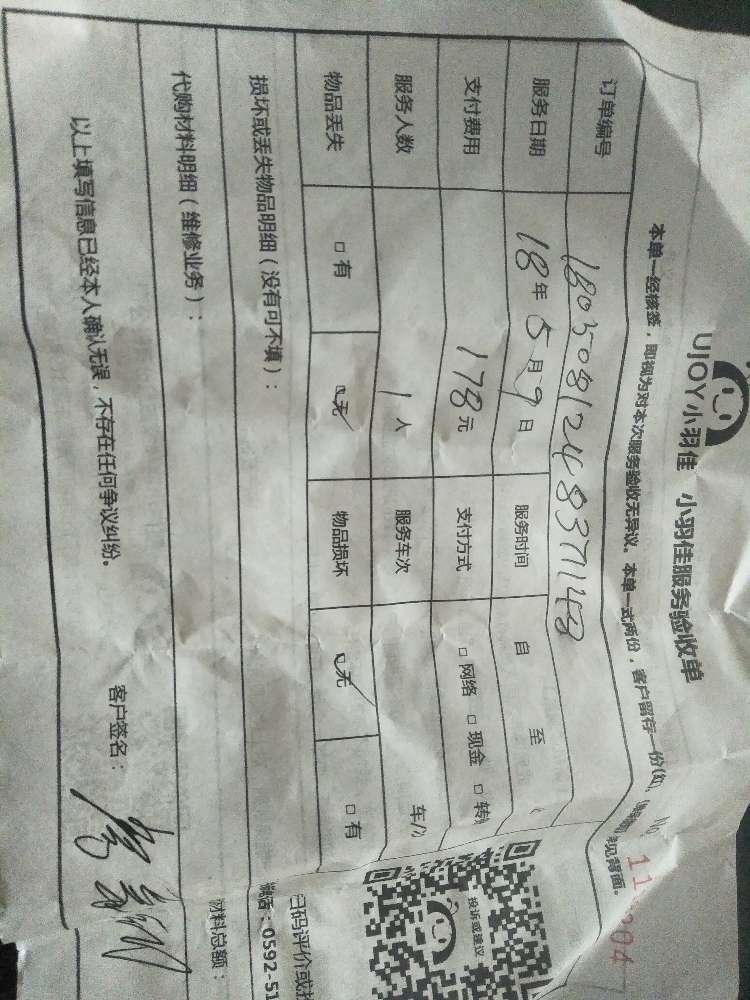 UJOY小羽佳 小羽佳服务验收单
本单一经核签，即视为对本次服务验收无异议。本单一式两份，客户留存一份(红
见背面。
订单编号
服务日期 18年5月9日 服务时间 自 至
支付费用 178元 支付方式 □网络 □现金 □转
服务人数 1人 服务车次 车/
物品丢失 □有 □无 物品损坏 □无 □有
损坏或丢失物品明细（没有可不填）：
代购材料明细（维修业务）： 材料总额：
以上填写信息已经本人确认无误，不存在任何争议纠纷。 客户签名：
投诉或建议
扫码评价或
0592-51